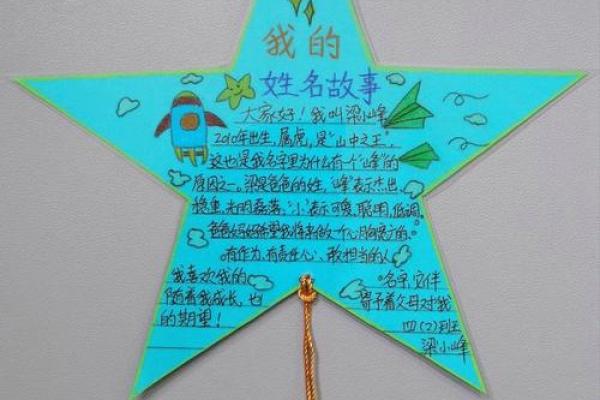 我的
姓名故事
大家好！我叫梁小峰
2010年出生，属虎，是“山中之王”，
这也是我名字里为什么有一个“峰”的
原因之一。梁是爸爸的姓，“峰”表示杰出、
稳重、光明磊落，“小”表示可爱、聪明、低调。
爸爸妈妈希望我将来做一个心胸宽广的、
有作为、有责任心、敢担当的人。
我喜欢我的名字，它伴
随着我成长，也寄予着父母对我
的期望！
四（2）班
梁小峰